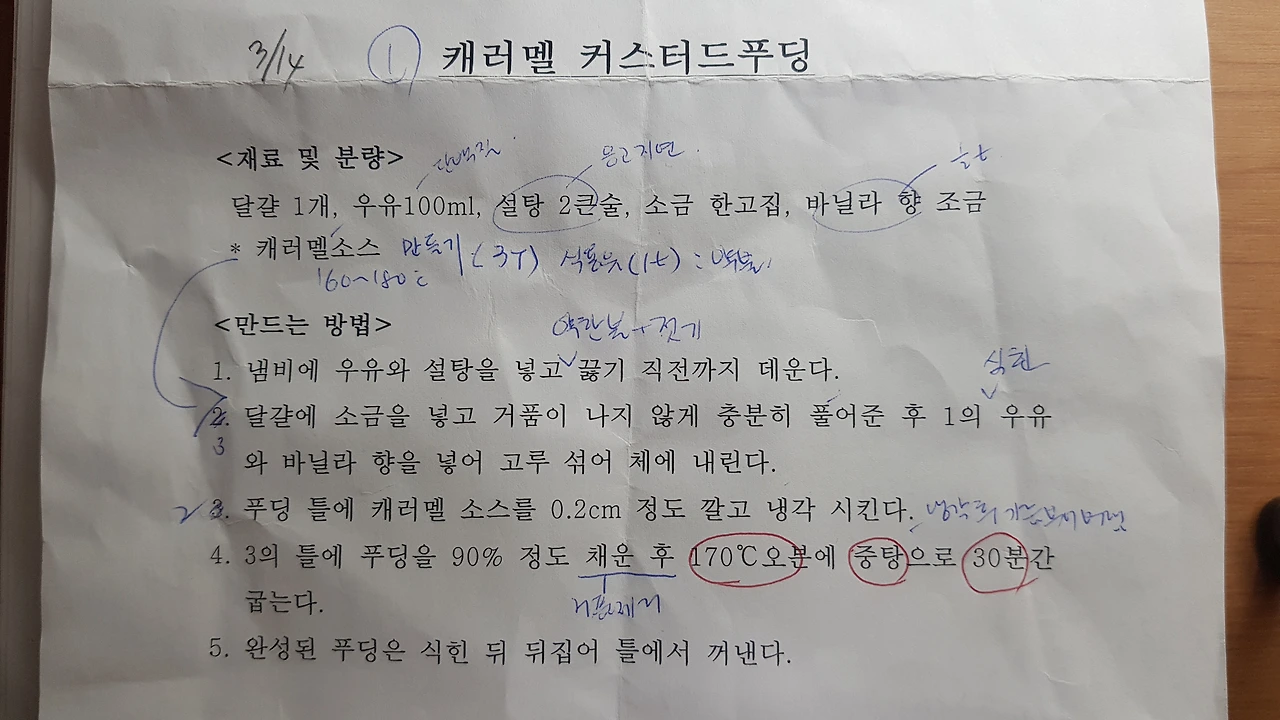 3/14 ① 캐러멜 커스터드푸딩
단백질 응고지연
<재료 및 분량>
달걀 1개, 우유100ml, 설탕 2큰술, 소금 한고집, 바닐라 향 조금
* 캐러멜소스 만들기 (3T) 식물유(1t) :
160~180℃
<만드는 방법>
약간불 + 젓기
1. 냄비에 우유와 설탕을 넣고 끓기 직전까지 데운다.
식힌
2. 달걀에 소금을 넣고 거품이 나지 않게 충분히 풀어준 후 1의 우유
3
와 바닐라 향을 넣어 고루 섞어 체에 내린다.
2 3. 푸딩 틀에 캐러멜 소스를 0.2cm 정도 깔고 냉각 시킨다. 냉각 후
4. 3의 틀에 푸딩을 90% 정도 채운 후 170℃오븐에 중탕으로 30분간
거품제거
굽는다.
5. 완성된 푸딩은 식힌 뒤 뒤집어 틀에서 꺼낸다.